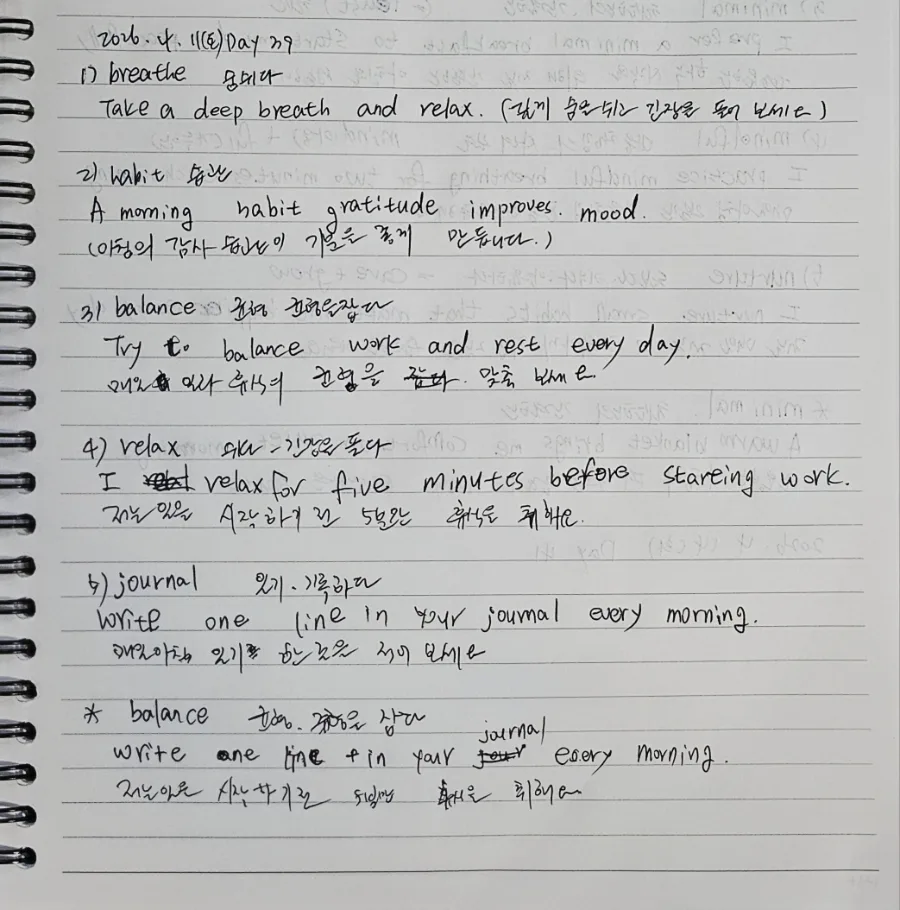 2026. 4. 11(토) Day 39
1) breathe 숨쉬다
Take a deep breath and relax. (깊게 숨을 쉬고 긴장을 풀어 보세요)
2) habit 습관
A morning habit gratitude improves. mood.
(아침의 감사 습관이 기분을 좋게 만듭니다.)
3) balance 균형 균형을잡다
Try to balance work and rest every day.
매일 일과 휴식의 균형을 맞춰 보세요
4) relax 쉬다 - 긴장을 풀다
I relax for five minutes before stareing work.
저는 일을 시작하기 전 5분간 휴식을 취해요.
5) journal 일기. 기록하다
Write one line in your journal every morning.
매일아침 일기 한줄을 적어 보세요
* balance 균형. 균형을 잡다
write one line in your journal every morning.
저는 일을 시작하기전 5분간 휴식을 취해요